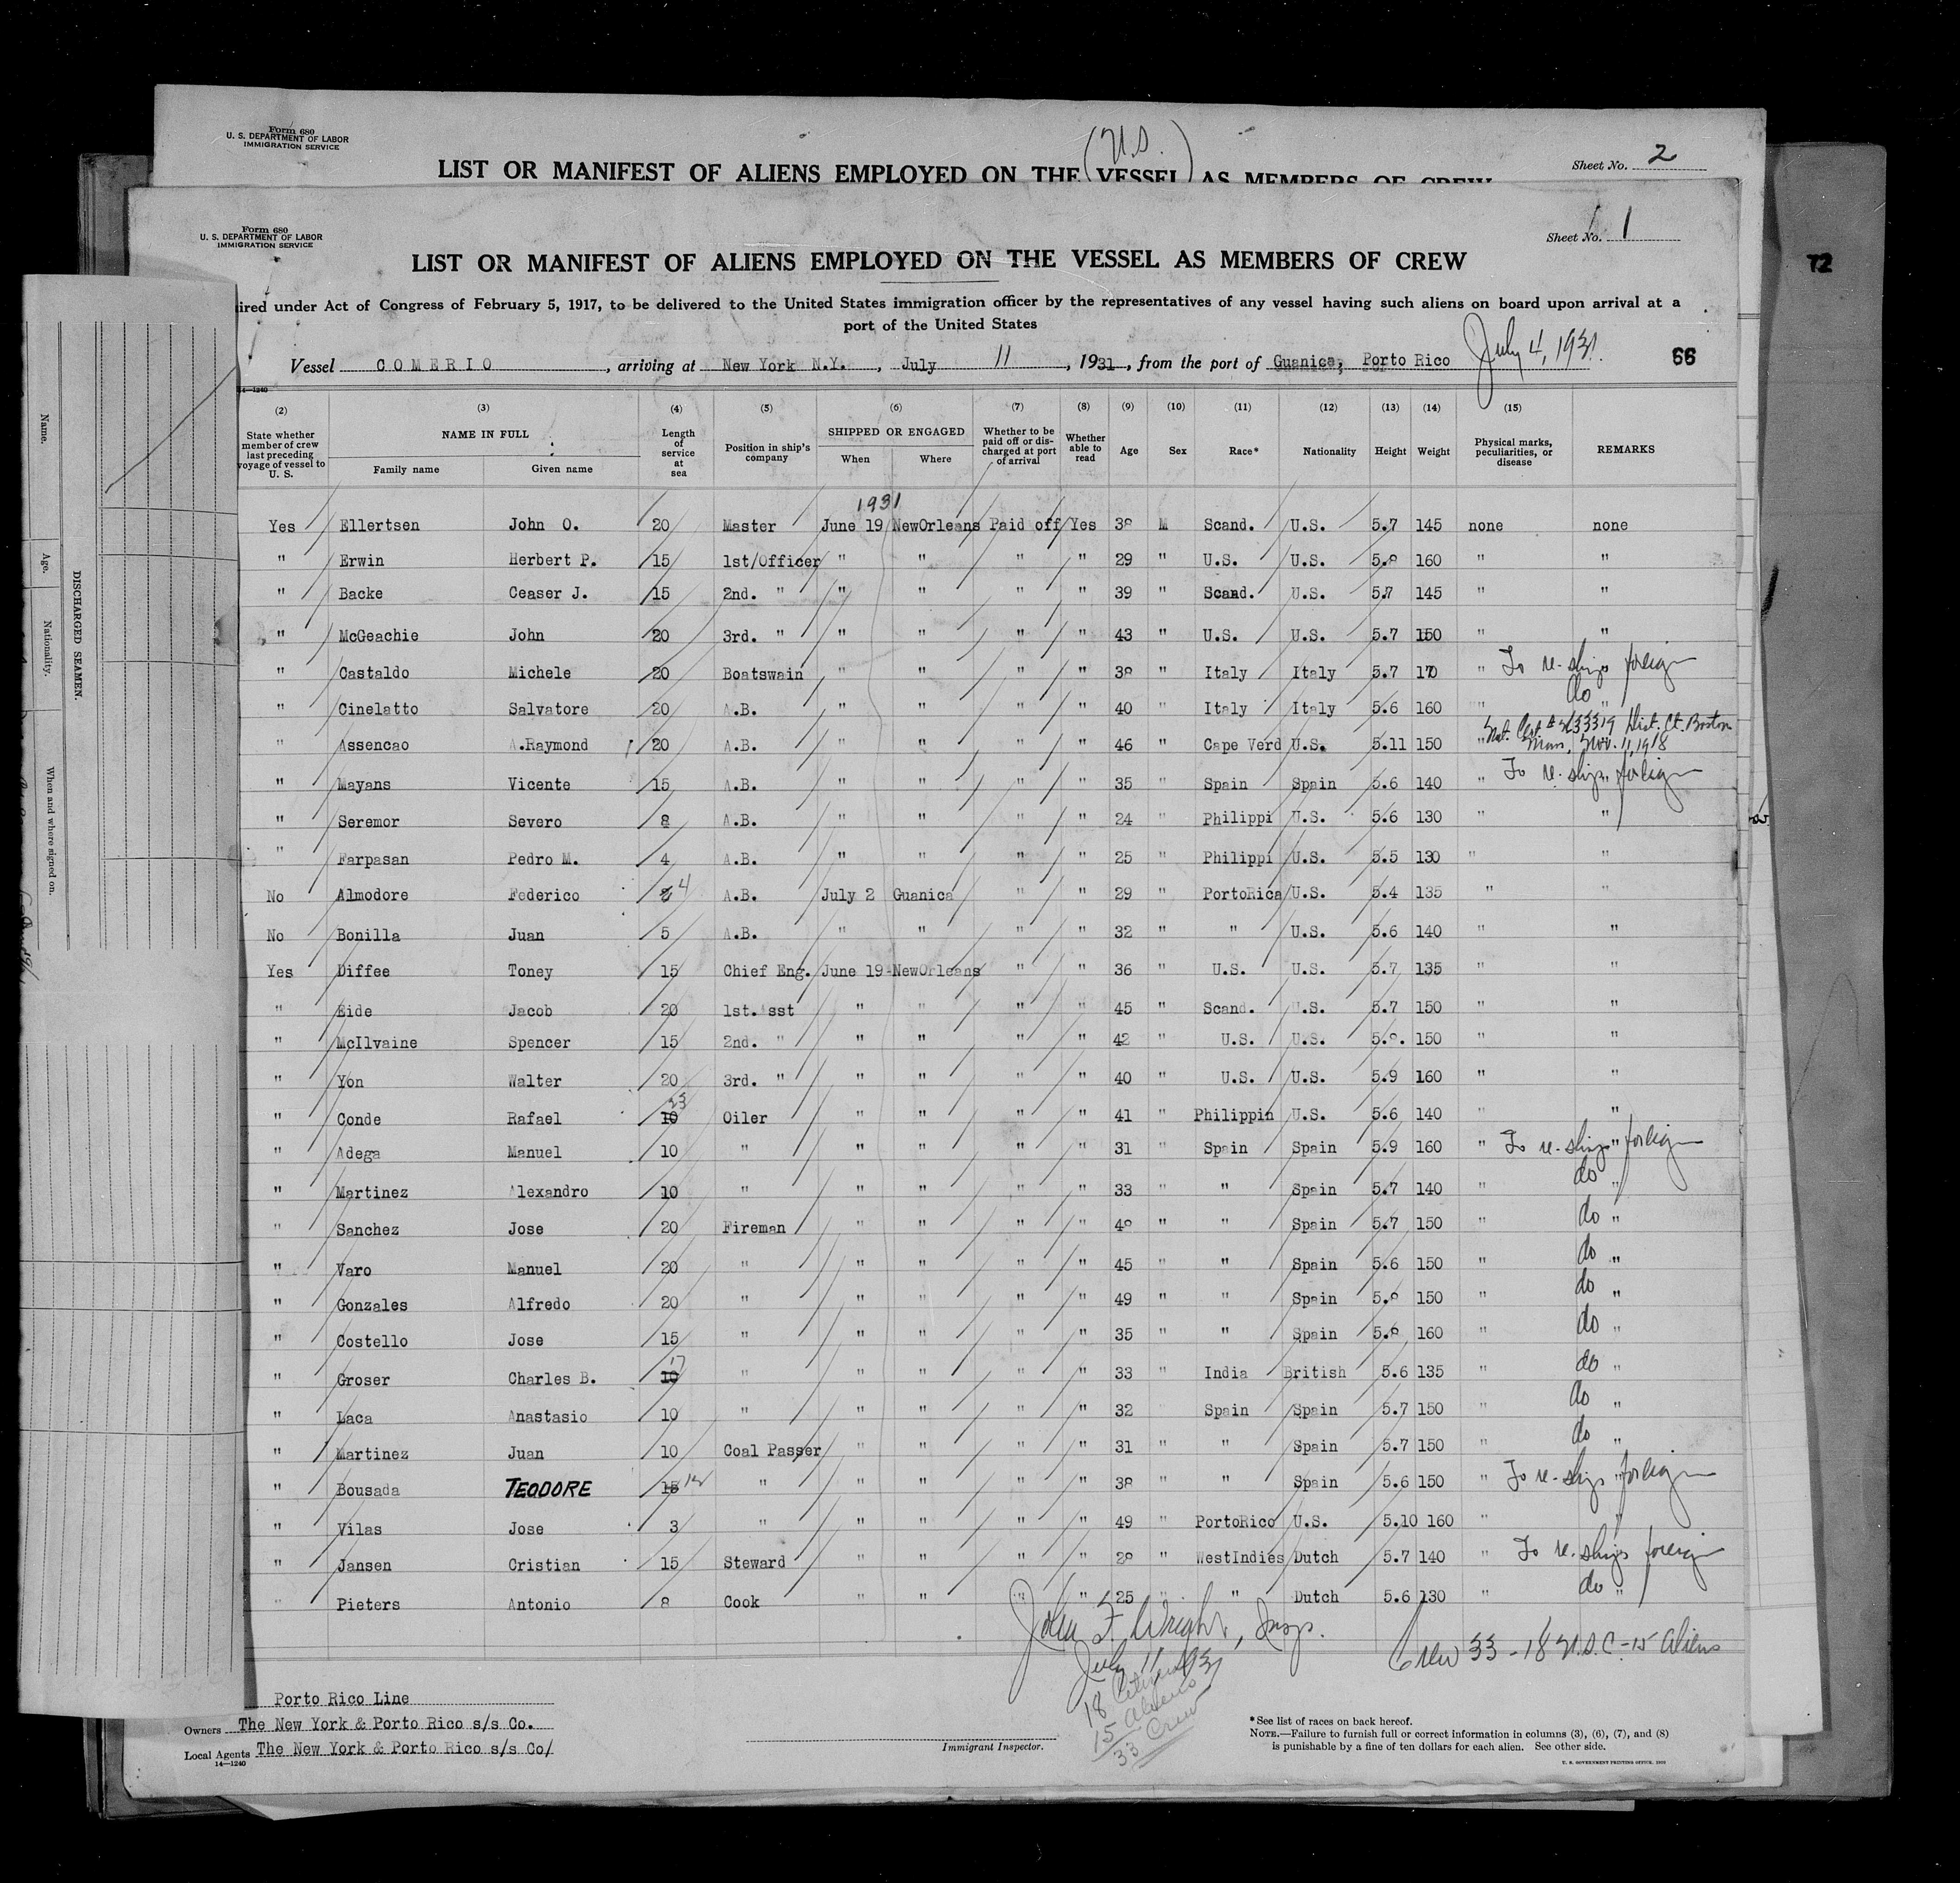 Form 680
U. S. DEPARTMENT OF LABOR
IMMIGRATION SERVICE
(U.S.)
Sheet No. 2
LIST OR MANIFEST OF ALIENS EMPLOYED ON THE VESSEL AS MEMBERS OF CREW
Form 680
U. S. DEPARTMENT OF LABOR
IMMIGRATION SERVICE
Sheet No. 1
72
LIST OR MANIFEST OF ALIENS EMPLOYED ON THE VESSEL AS MEMBERS OF CREW
ired under Act of Congress of February 5, 1917, to be delivered to the United States immigration officer by the representatives of any vessel having such aliens on board upon arrival at a
port of the United States
Vessel COMERIO, arriving at New York N.Y., July 11, 1931, from the port of Guanica, Porto Rico July 4, 1931. 66
14—1240
(2) (3) (4) (5) (6) (7) (8) (9) (10) (11) (12) (13) (14) (15)
State whether member of crew last preceding voyage of vessel to U. S. NAME IN FULL Family name Given name Length of service at sea Position in ship's company SHIPPED OR ENGAGED When Where Whether to be paid off or discharged at port of arrival Whether able to read Age Sex Race* Nationality Height Weight Physical marks, peculiarities, or disease REMARKS
1931
Yes Ellertsen John O. 20 Master June 19 NewOrleans Paid off Yes 38 M Scand. U.S. 5.7 145 none none
" Erwin Herbert P. 15 1st/Officer " " " " 29 " U.S. U.S. 5.8 160 " "
" Backe Ceaser J. 15 2nd. " " " " " 39 " Scand. U.S. 5.7 145 " "
" McGeachie John 20 3rd. " " " " " 43 " U.S. U.S. 5.7 150 " "
" Castaldo Michele 20 Boatswain " " " " 38 " Italy Italy 5.7 170 " " To re-ship foreign
" Cinelatto Salvatore 20 A.B. " " " " 40 " Italy Italy 5.6 160 " " do
" Assencao A.Raymond 20 A.B. " " " " 46 " Cape Verd U.S. 5.11 150 " Nat. Cert. # Dist. Ct. Boston
Mass. Nov. 11, 1918
" Mayans Vicente 15 A.B. " " " " 35 " Spain Spain 5.6 140 " " To re-ship foreign
" Seremor Severo 8 A.B. " " " " 24 " Philippi U.S. 5.6 130 " "
" Farpasan Pedro M. 4 A.B. " " " " 25 " Philippi U.S. 5.5 130 " "
No Almodore Federico 4 A.B. July 2 Guanica " " 29 " PortoRica U.S. 5.4 135 " "
No Bonilla Juan 5 A.B. " " " " 32 " " U.S. 5.6 140 " "
Yes Diffee Toney 15 Chief Eng. June 19 NewOrleans " " 36 " U.S. U.S. 5.7 135 " "
" Eide Jacob 20 1st. sst " " " " 45 " Scand. U.S. 5.7 150 " "
" McIlvaine Spencer 15 2nd. " " " " " 42 " U.S. U.S. 5.8. 150 " "
" Yon Walter 20 3rd. " " " " " 40 " U.S. U.S. 5.9 160 " "
" Conde Rafael 10 23 Oiler " " " " 41 " Philippin U.S. 5.6 140 " "
" Adega Manuel 10 " " " " " 31 " Spain Spain 5.9 160 " " To re-ship foreign
" Martinez Alexandro 10 " " " " " 33 " " Spain 5.7 140 " " do
" Sanchez Jose 20 Fireman " " " " 48 " " Spain 5.7 150 " " do
" Varo Manuel 20 " " " " " 45 " " Spain 5.6 150 " " do
" Gonzales Alfredo 20 " " " " " 49 " " Spain 5.8 150 " " do
" Costello Jose 15 " " " " " 35 " " Spain 5.8 160 " " do
" Groser Charles B. 10 17 " " " " " 33 " India British 5.6 135 " " do
" Laca Anastasio 10 " " " " " 32 Spain Spain 5.7 150 " " do
" Martinez Juan 10 Coal Passer " " " " 31 " " Spain 5.7 150 " " do
" Bousada TEODORE 15 12 " " " " " 38 " " Spain 5.6 150 " " To re-ship foreign
" Vilas Jose 3 " " " " " 49 " PortoRico U.S. 5.10 160 "
" Jansen Cristian 15 Steward " " " " 28 " WestIndies Dutch 5.7 140 " To re-ship foreign
" Pieters Antonio 8 Cook " " " " 25 " " Dutch 5.6 130 " " do
John F. Wright, Insp.
July 11 1931
Crew 33 - 18 U.S.C. - 15 Aliens
18 Citizens
15 Aliens
33 Crew
Porto Rico Line
Owners The New York & Porto Rico s/s Co.
Local Agents The New York & Porto Rico s/s Co/
14—1240
Immigrant Inspector.
*See list of races on back hereof.
NOTE.—Failure to furnish full or correct information in columns (3), (6), (7), and (8)
is punishable by a fine of ten dollars for each alien. See other side.
U. S. GOVERNMENT PRINTING OFFICE
DISCHARGED SEAMEN.
Name.
Age.
Nationality.
When and where signed on.